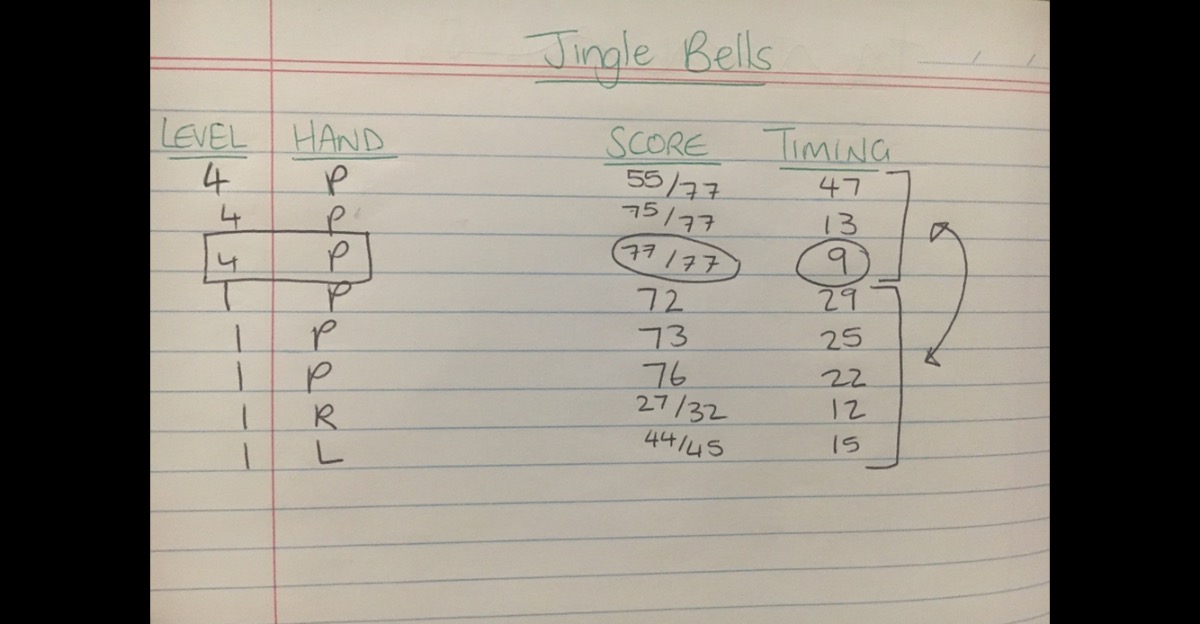 Jingle Bells
LEVEL HAND SCORE TIMING
4 P 55/77 47
4 P 75/77 13
4 P 77/77 9
1 P 72 29
1 P 73 25
1 P 76 22
1 R 27/32 12
1 L 44/45 15